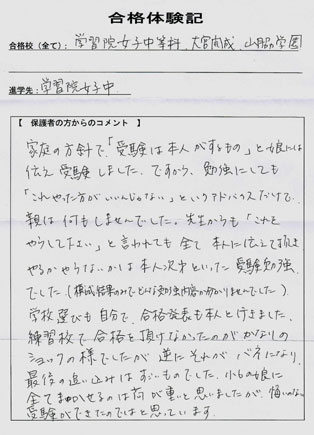 合格体験記
合格校（全て）： 学習院女子中等科、大宮開成、山脇学園
進学先： 学習院女子中
【 保護者の方からのコメント 】
家庭の方針で、「受験は本人がするもの」と娘には
伝え受験しました。ですから、勉強にしても
「これやった方がいいんじゃない」というアドバイスだけで、
親は何もしませんでした。先生からも「これを
やらしてよい」と言われても全て本人に伝えて
やるかやらないかは本人次第といった受験勉強
でした（ 結果のみでどんな勉強内容か分かりませんでした）
学校選びも自分で、合格発表も本人と行きました。
練習校で合格を頂けなかったのがかなりの
ショックの様でしたが逆にそれがバネになり、
最後の追い込みはすごいものでした。小6の娘に
全てまかせるのは荷が重いと思いましたが、悔いのない
受験ができたのではと思っています。